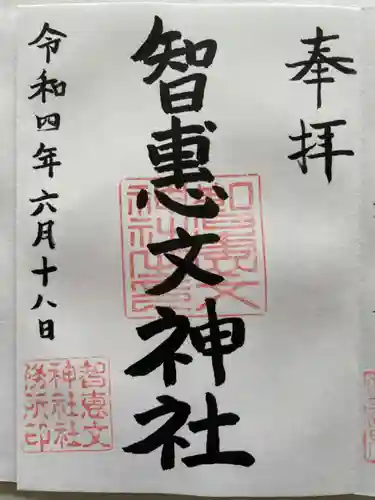 奉拝
智惠文神社
令和四年六月十八日
智惠文
神社社
務所印